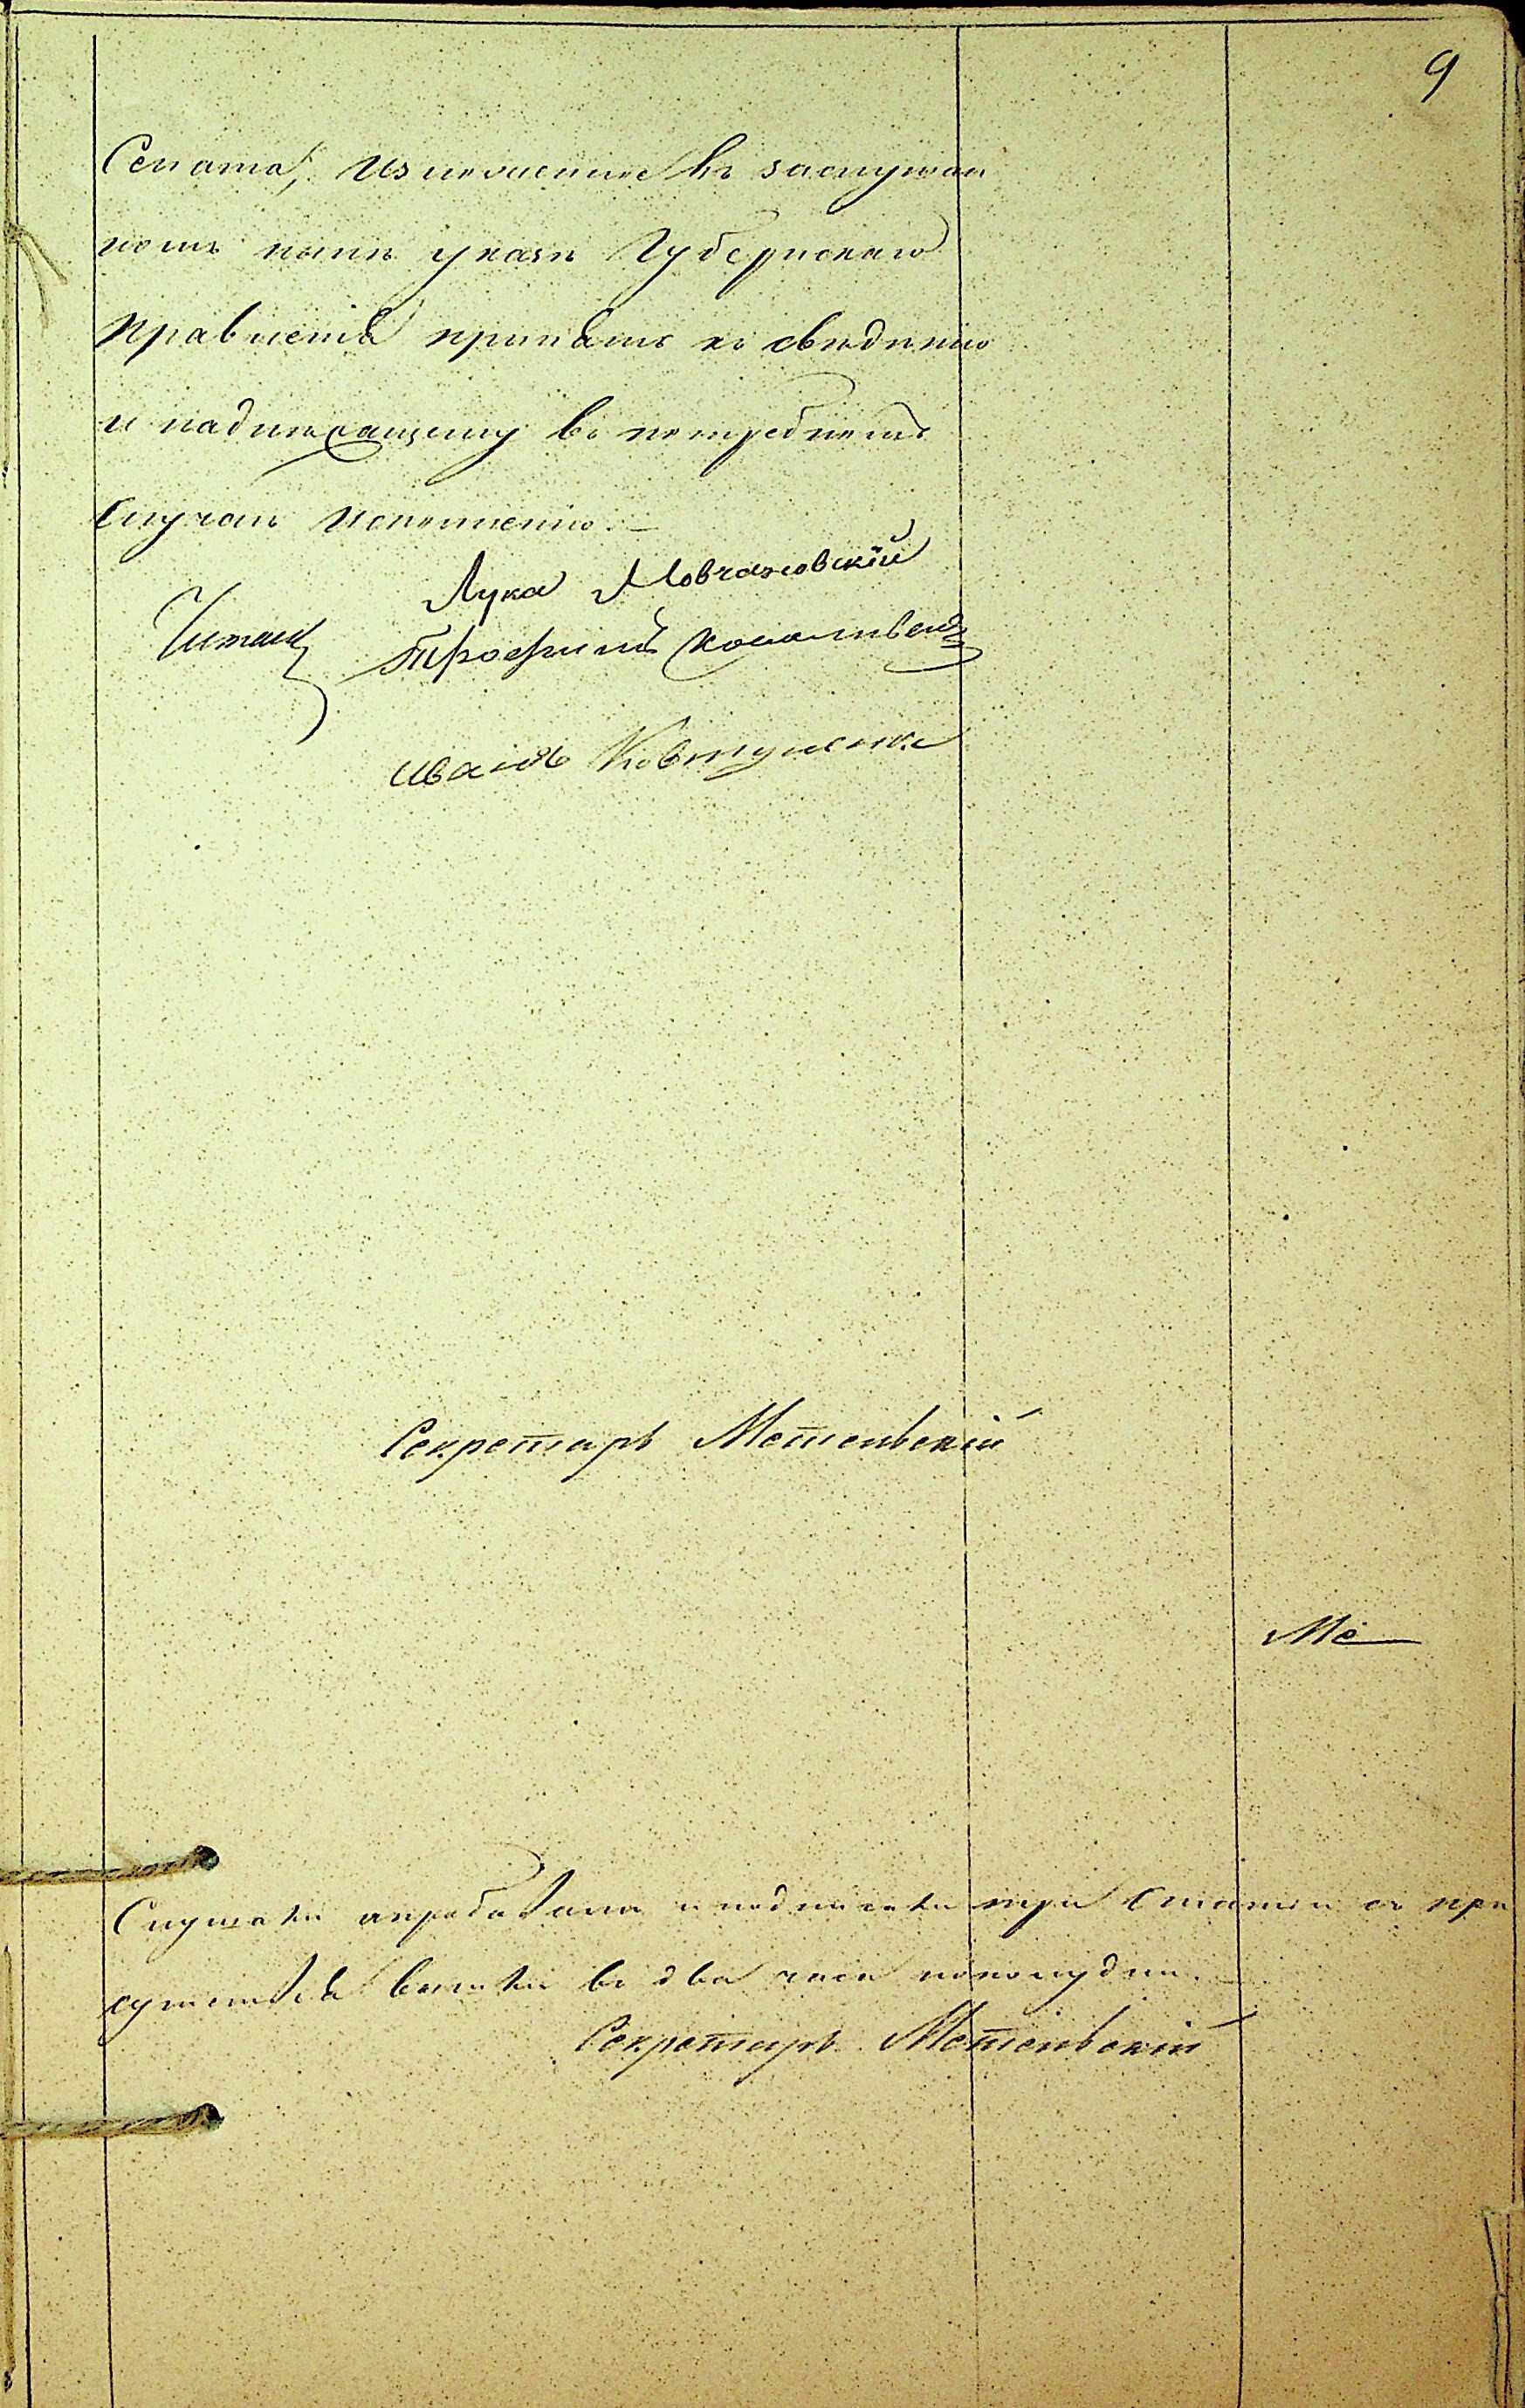 9
Сената, изложенное въ заслушан
номъ нынѣ указѣ Губернскаго
Правленія принять къ свѣдѣнію
и надлежащему въ потребномъ
случаѣ исполненію. —
Лука Мовчановскій
Читалъ Трофимъ
иванъ Ковтуненко
Секретарь Метельскій
Ме
Слушали апробовали и подписали три Статьи съ при
сутствія вышли въ два часа пополудни. —
Секретарь Метельскій